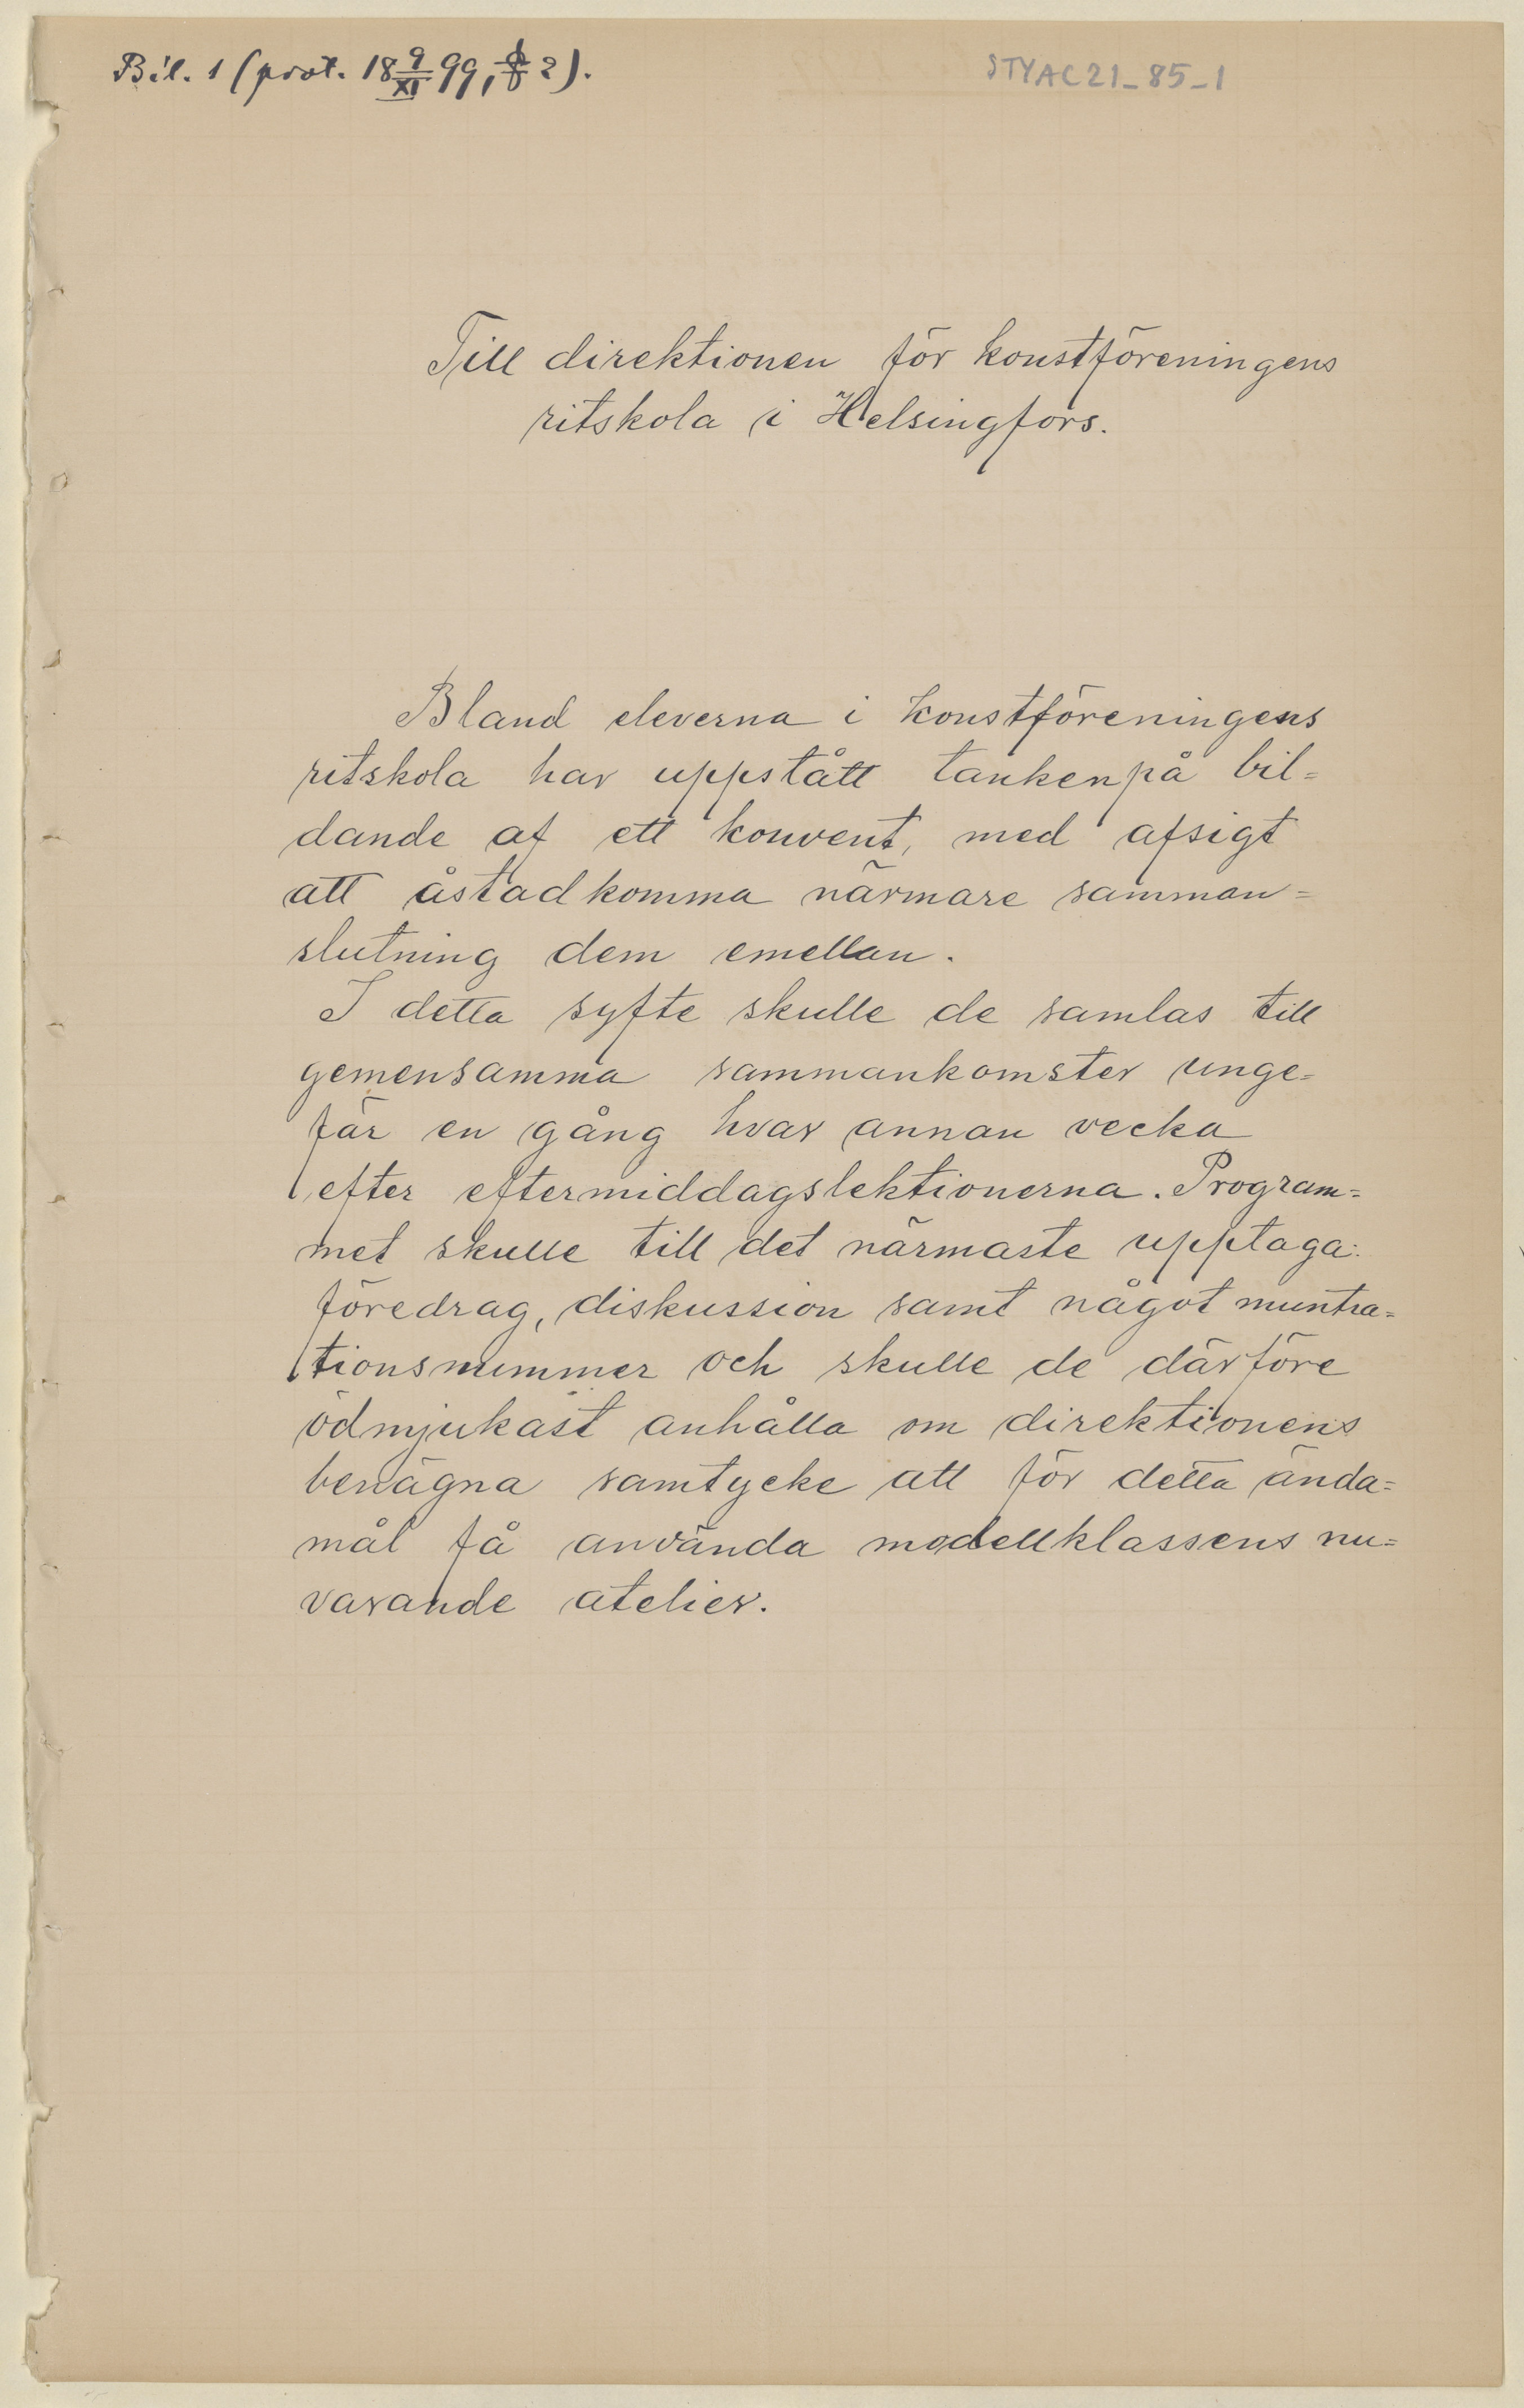 Bil. 1 (prot. 18 9/XI 99, § 2).
STYAC21_85_1
Till direktionen för konstföreningens
ritskola i Helsingfors.
Bland eleverna i konstföreningens
ritskola har uppstått tanken på bil=
dande af ett konvent, med afsigt
att åstadkomma närmare samman=
slutning dem emellan.
I detta syfte skulle de samlas till
gemensamma sammankomster unge=
fär en gång hvar annan vecka
efter eftermiddagslektionerna. Program=
met skulle till det närmaste upptaga:
föredrag, diskussion samt något muntra=
tionsnummer och skulle de därföre
ödmjukast anhålla om direktionens
benägna samtycke att för detta ända=
mål få använda modellklassens nu=
varande atelier.